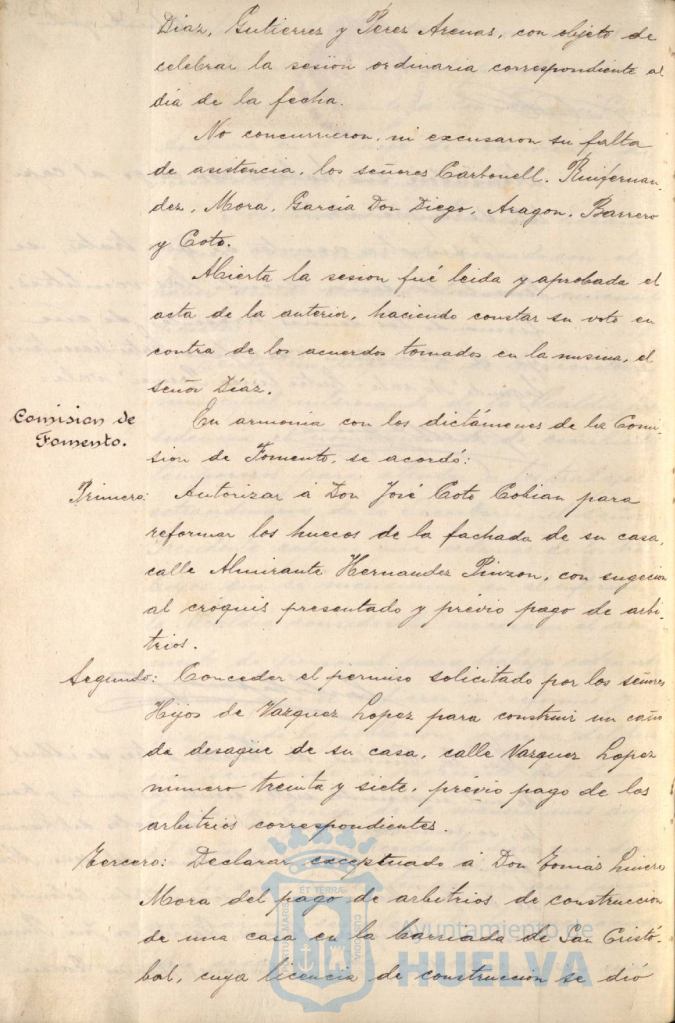 Díaz, Gutierrez y Perez Arenas, con objeto de
celebrar la sesion ordinaria correspondiente al
día de la fecha.
No concurrieron, ni excusaron su falta
de asistencia, los señores Carbonell, Ruifernan-
dez, Mora, García Don Diego, Aragon, Barrero
y Coto.
Abierta la sesion fué leida y aprobada el
acta de la anterior, haciendo constar su voto en
contra de los acuerdos tomados en la misma, el
señor Díaz.
Comision de
Fomento.
En armonía con los dictámenes de la Comi-
sion de Fomento, se acordó:
Primero: Autorizar á Don José Coto Cobian para
reformar los huecos de la fachada de su casa,
calle Almirante Hernandez Pinzon, con sugecion
al cróquis presentado y prévio pago de arbi-
trios.
Segundo: Conceder el permiso solicitado por los señores
Hijos de Vazquez Lopez para construir un caño
de desagüe de su casa, calle Vazquez Lopez
número treinta y siete, prévio pago de los
arbitrios correspondientes.
Tercero: Declarar exceptuado á Don Tomás
Mora del pago de arbitrios de construccion
de una casa en la barriada de San Cristó-
bal, cuya licencia de construccion se dió
Ayuntamiento de
HUELVA